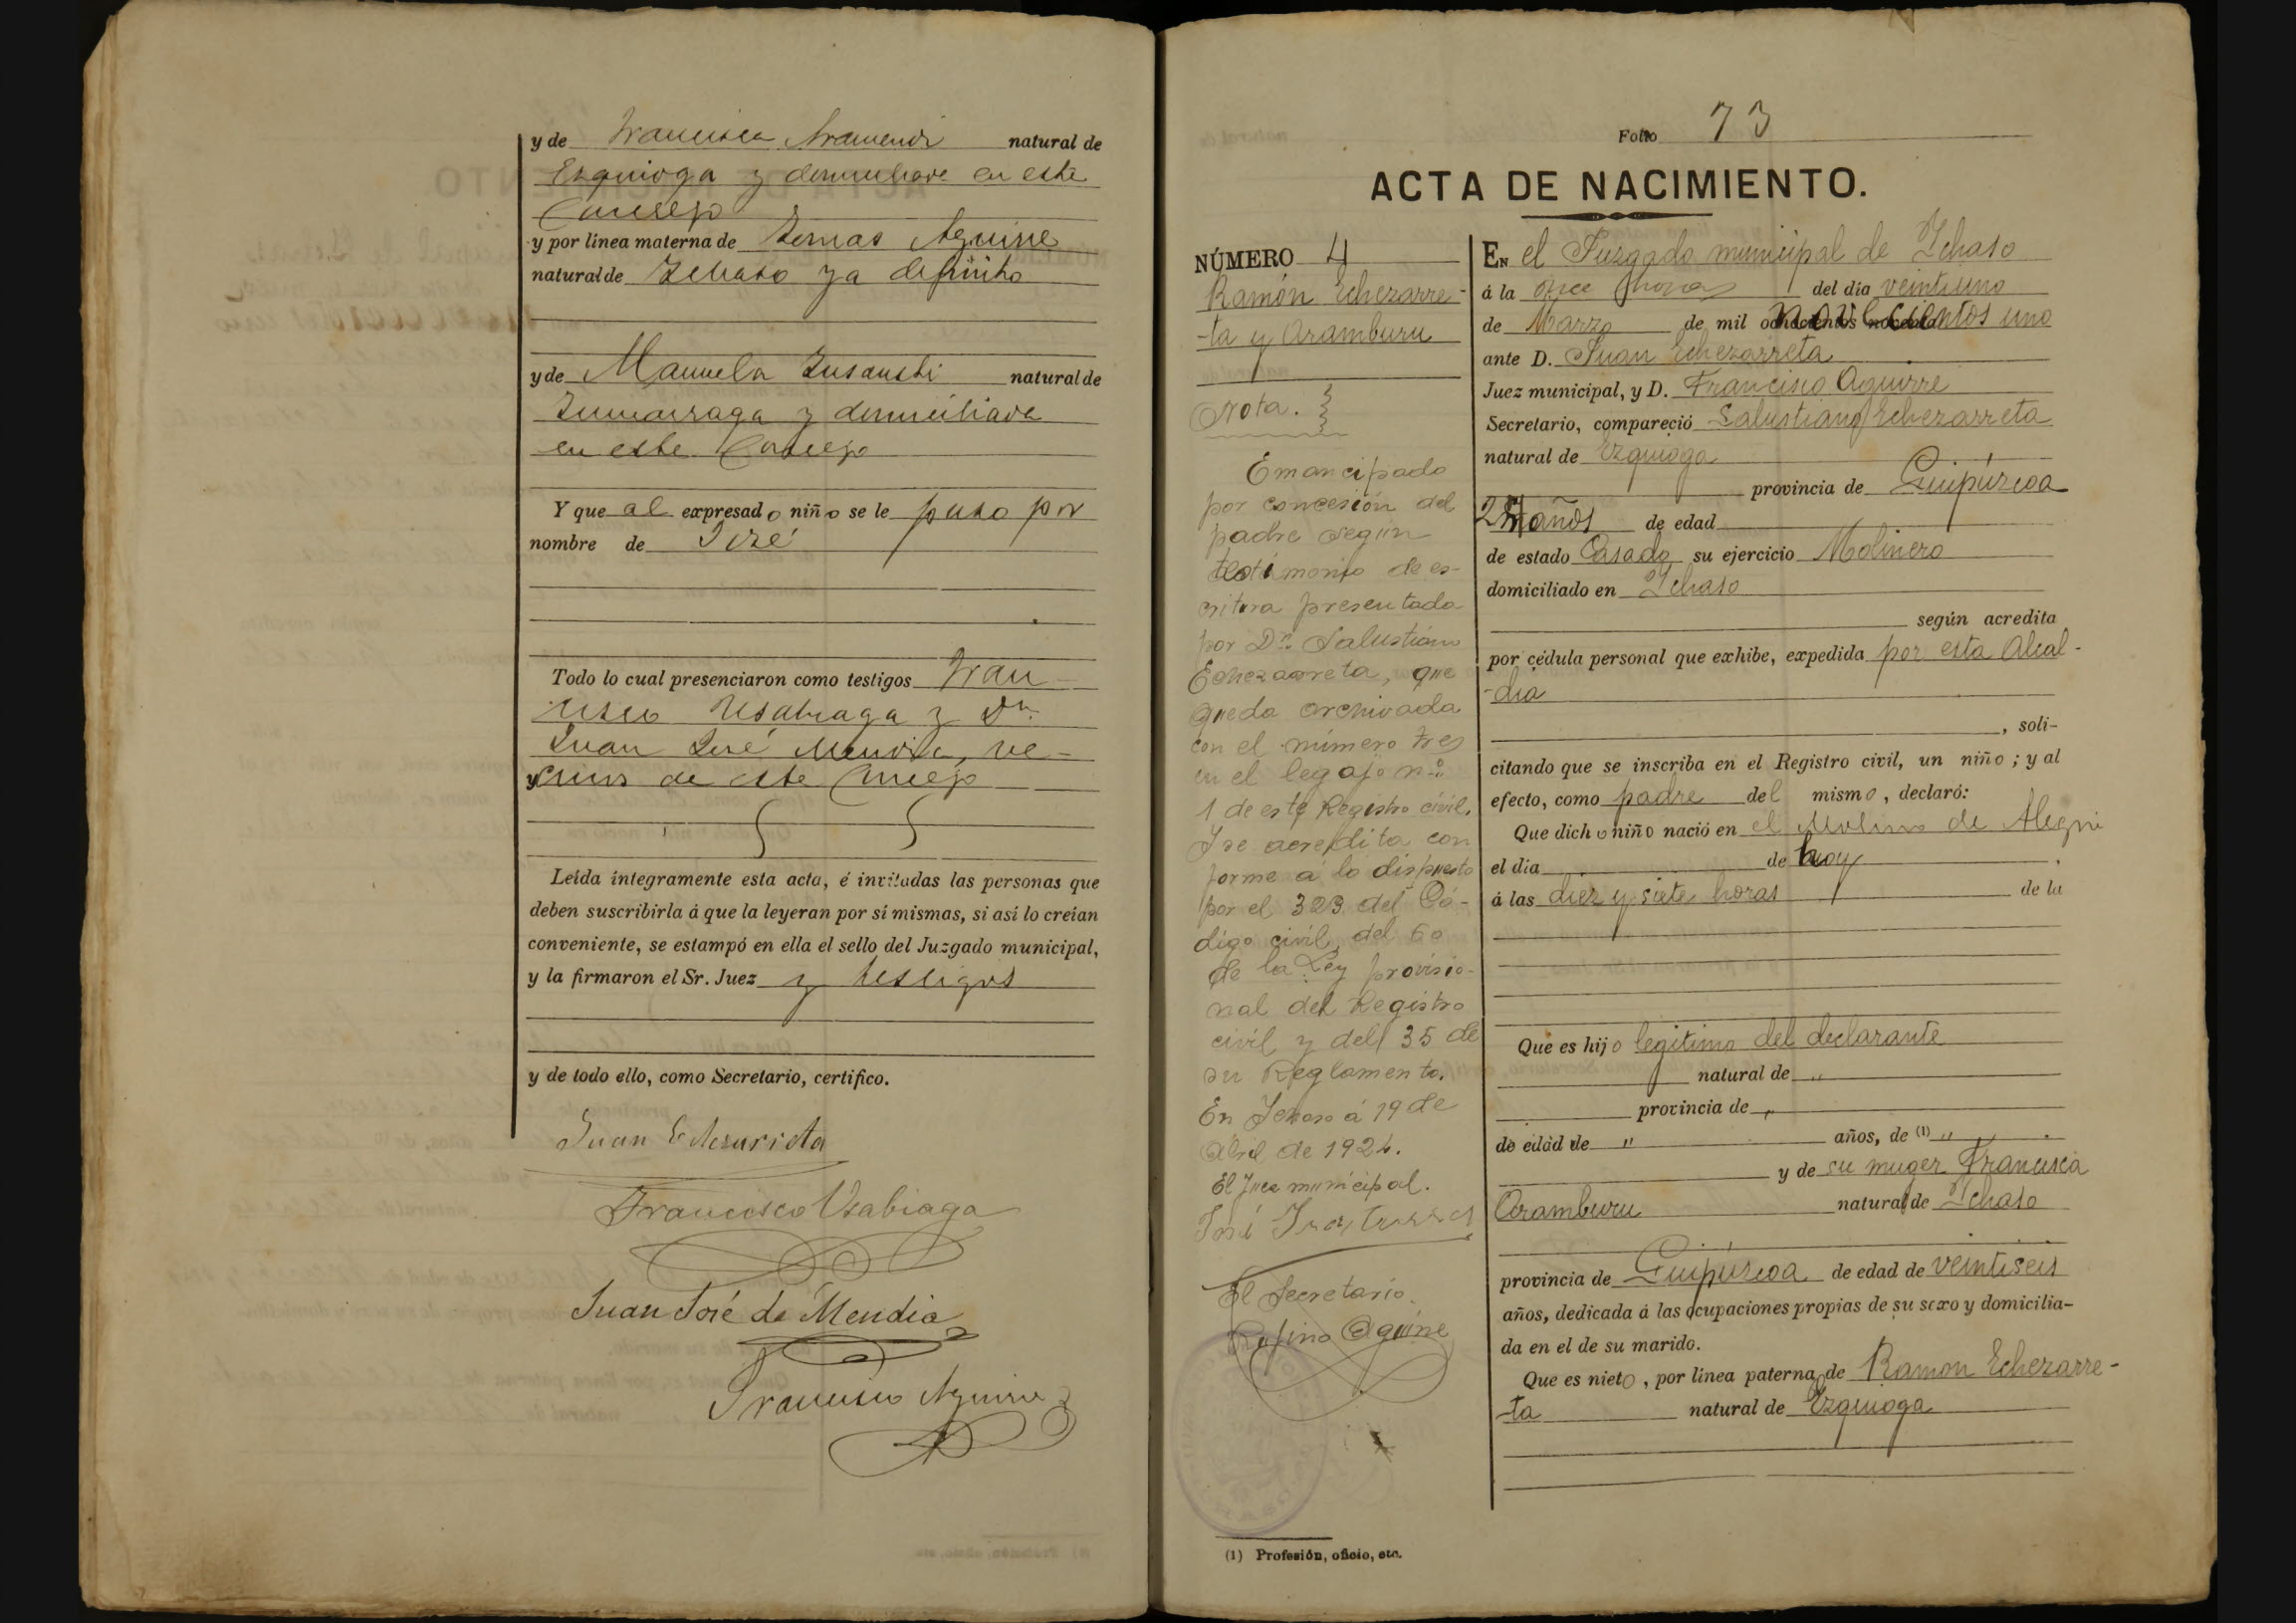 y de Francisca Aramendi natural de
Ezquioga y domiciliada en este
Concejo
y por línea materna de Tomas Aguirre
natural de Ichaso ya difunto
y de Manuela Insausti natural de
Zumarraga y domiciliada
en este Concejo
Y que al expresado niño se le puso por
nombre de José
Todo lo cual presenciaron como testigos Fran
cisco Usabiaga y Dn.
Juan José Mendia, ve-
y cinos de este Concejo
Leída íntegramente esta acta, é invitadas las personas que
deben suscribirla á que la leyeran por sí mismas, si así lo creían
conveniente, se estampó en ella el sello del Juzgado municipal,
y la firmaron el Sr. Juez y testigos
y de todo ello, como Secretario, certifico.
Juan Echezarreta
Francisco Usabiaga
Juan José de Mendia
Francisco Aguirre
Folio 73
ACTA DE NACIMIENTO.
NÚMERO 4
Ramón Echezarre-
-ta y Aramburu
Nota.
Emancipado
por concesión del
padre según
testimonio de es-
critura presentada
por Dn. Salustiano
Echezarreta, que
queda archivada
con el número tres
en el legajo nº
1 de este Registro civil.
Y se acredita con
forme á lo dispuesto
por el 323 del Có-
digo civil, del 60
de la Ley provisio-
nal del Registro
civil y del 35 de
su Reglamento.
En Ichaso á 19 de
Abril de 1924.
El Juez municipal.
José
El Secretario.
Rufino Aguirre
(1) Profesión, oficio, etc.
EN el Juzgado municipal de Ichaso
á la once horas del día veintiuno
de Marzo de mil novecientos uno
ante D. Juan Echezarreta
Juez municipal, y D. Francisco Aguirre
Secretario, compareció Salustiano Echezarreta
natural de Ezquioga
provincia de Guipúzcoa
años de edad
de estado Casado su ejercicio Molinero
domiciliado en Ichaso
según acredita
por cédula personal que exhibe, expedida por esta Alcal-
-dia
, soli-
citando que se inscriba en el Registro civil, un niño; y al
efecto, como padre del mismo, declaró:
Que dicho niño nació en el Molino de Alegri
el día de hoy
á las diez y siete horas de la
Que es hijo legitimo del declarante
natural de "
provincia de "
de edad de " años, de (1) "
y de su muger Francisca
Aramburu natural de Ichaso
provincia de Guipúzcoa de edad de veintiseis
años, dedicada á las ocupaciones propias de su sexo y domicilia-
da en el de su marido.
Que es nieto, por línea paterna de Ramon Echezarre-
-ta natural de Ezquioga